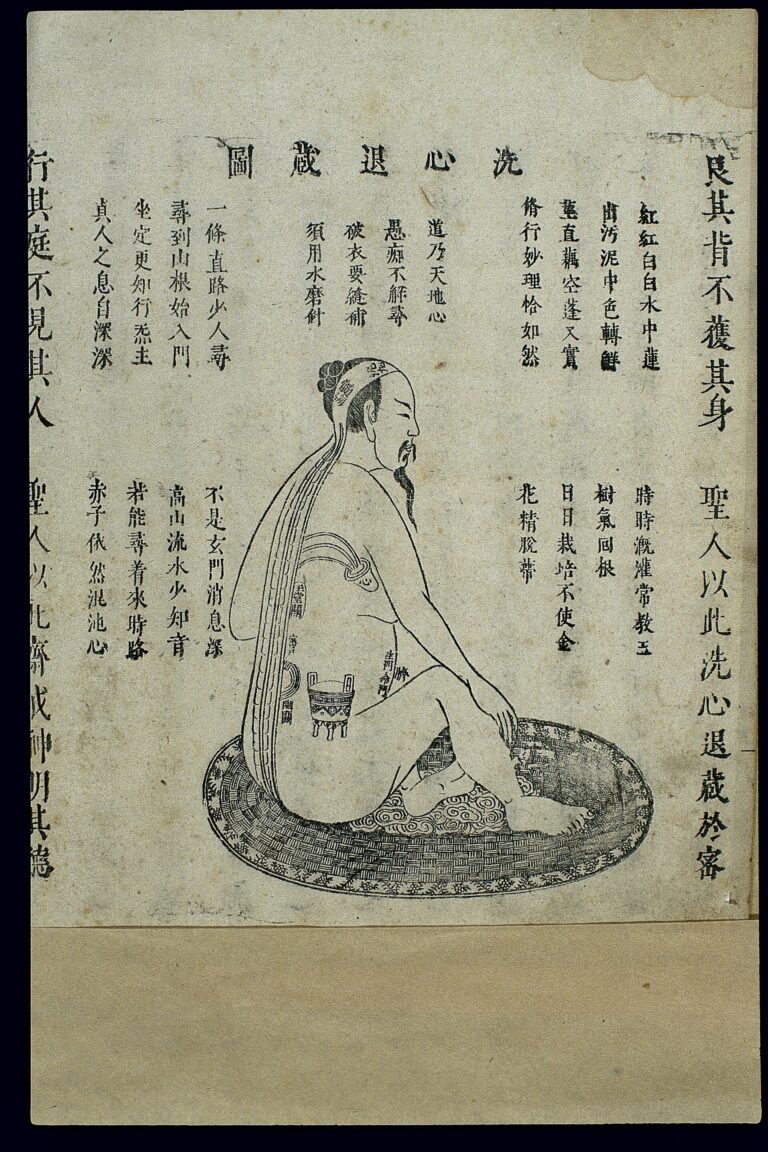 洗心退藏圖
艮其背不獲其身
聖人以此洗心退藏於密
紅紅白白水中蓮
出污泥中色轉鮮
莖直藕空蓬又實
脩行妙理恰如然
時時溉灌常教玉
樹氣囘根
日日栽培不使金
花精脫蒂
道乃天地心
愚痴不解尋
破衣要縫補
須用水磨針
一條直路少人尋
尋到山根始入門
坐定更知行炁主
真人之息自深深
不是玄門消息深
高山流水少知音
若能尋着來時路
赤子依然混沌心
行其庭不見其人
聖人以此齋戒神明其德
臍